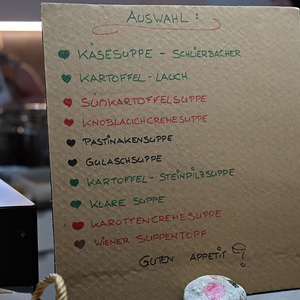 AUSWAHL:
KÄSESUPPE - SCHLIERBACHER
KARTOFFEL - LAUCH
SÜßKARTOFFELSUPPE
KNOBLAUCHCREMESUPPE
PASTINAKENSUPPE
GULASCHSUPPE
KARTOFFEL - STEINPILZSUPPE
KLARE SUPPE
KAROTTENCREMESUPPE
WIENER SUPPENTOPF
GUTEN APPETIT!